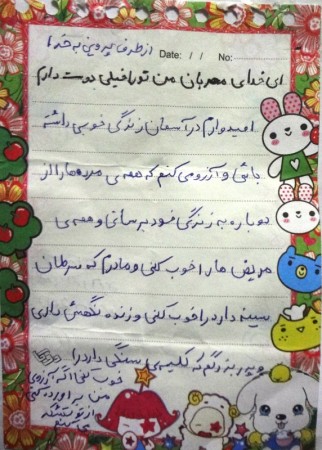 از طرف پروین به خدا
Date: / / No:
ای خدای مهربان من تو را خیلی دوست دارم
امیدوارم در آسمان زندگی خوبی داشته
باشی و آرزو می کنم که همه ی مرده ها را از
دوباره به زندگی خود برسانی و همه ی
مریض ها را خوب کنی و مادرم که سرطان
سینه دارد را خوب کنی و زنده نگهش داری
و پدر بزرگم که کلیه ی سنگی دارد را
خوب کنی اگه آرزوی
من به آورده کنی
از تو تشکر
می کنم